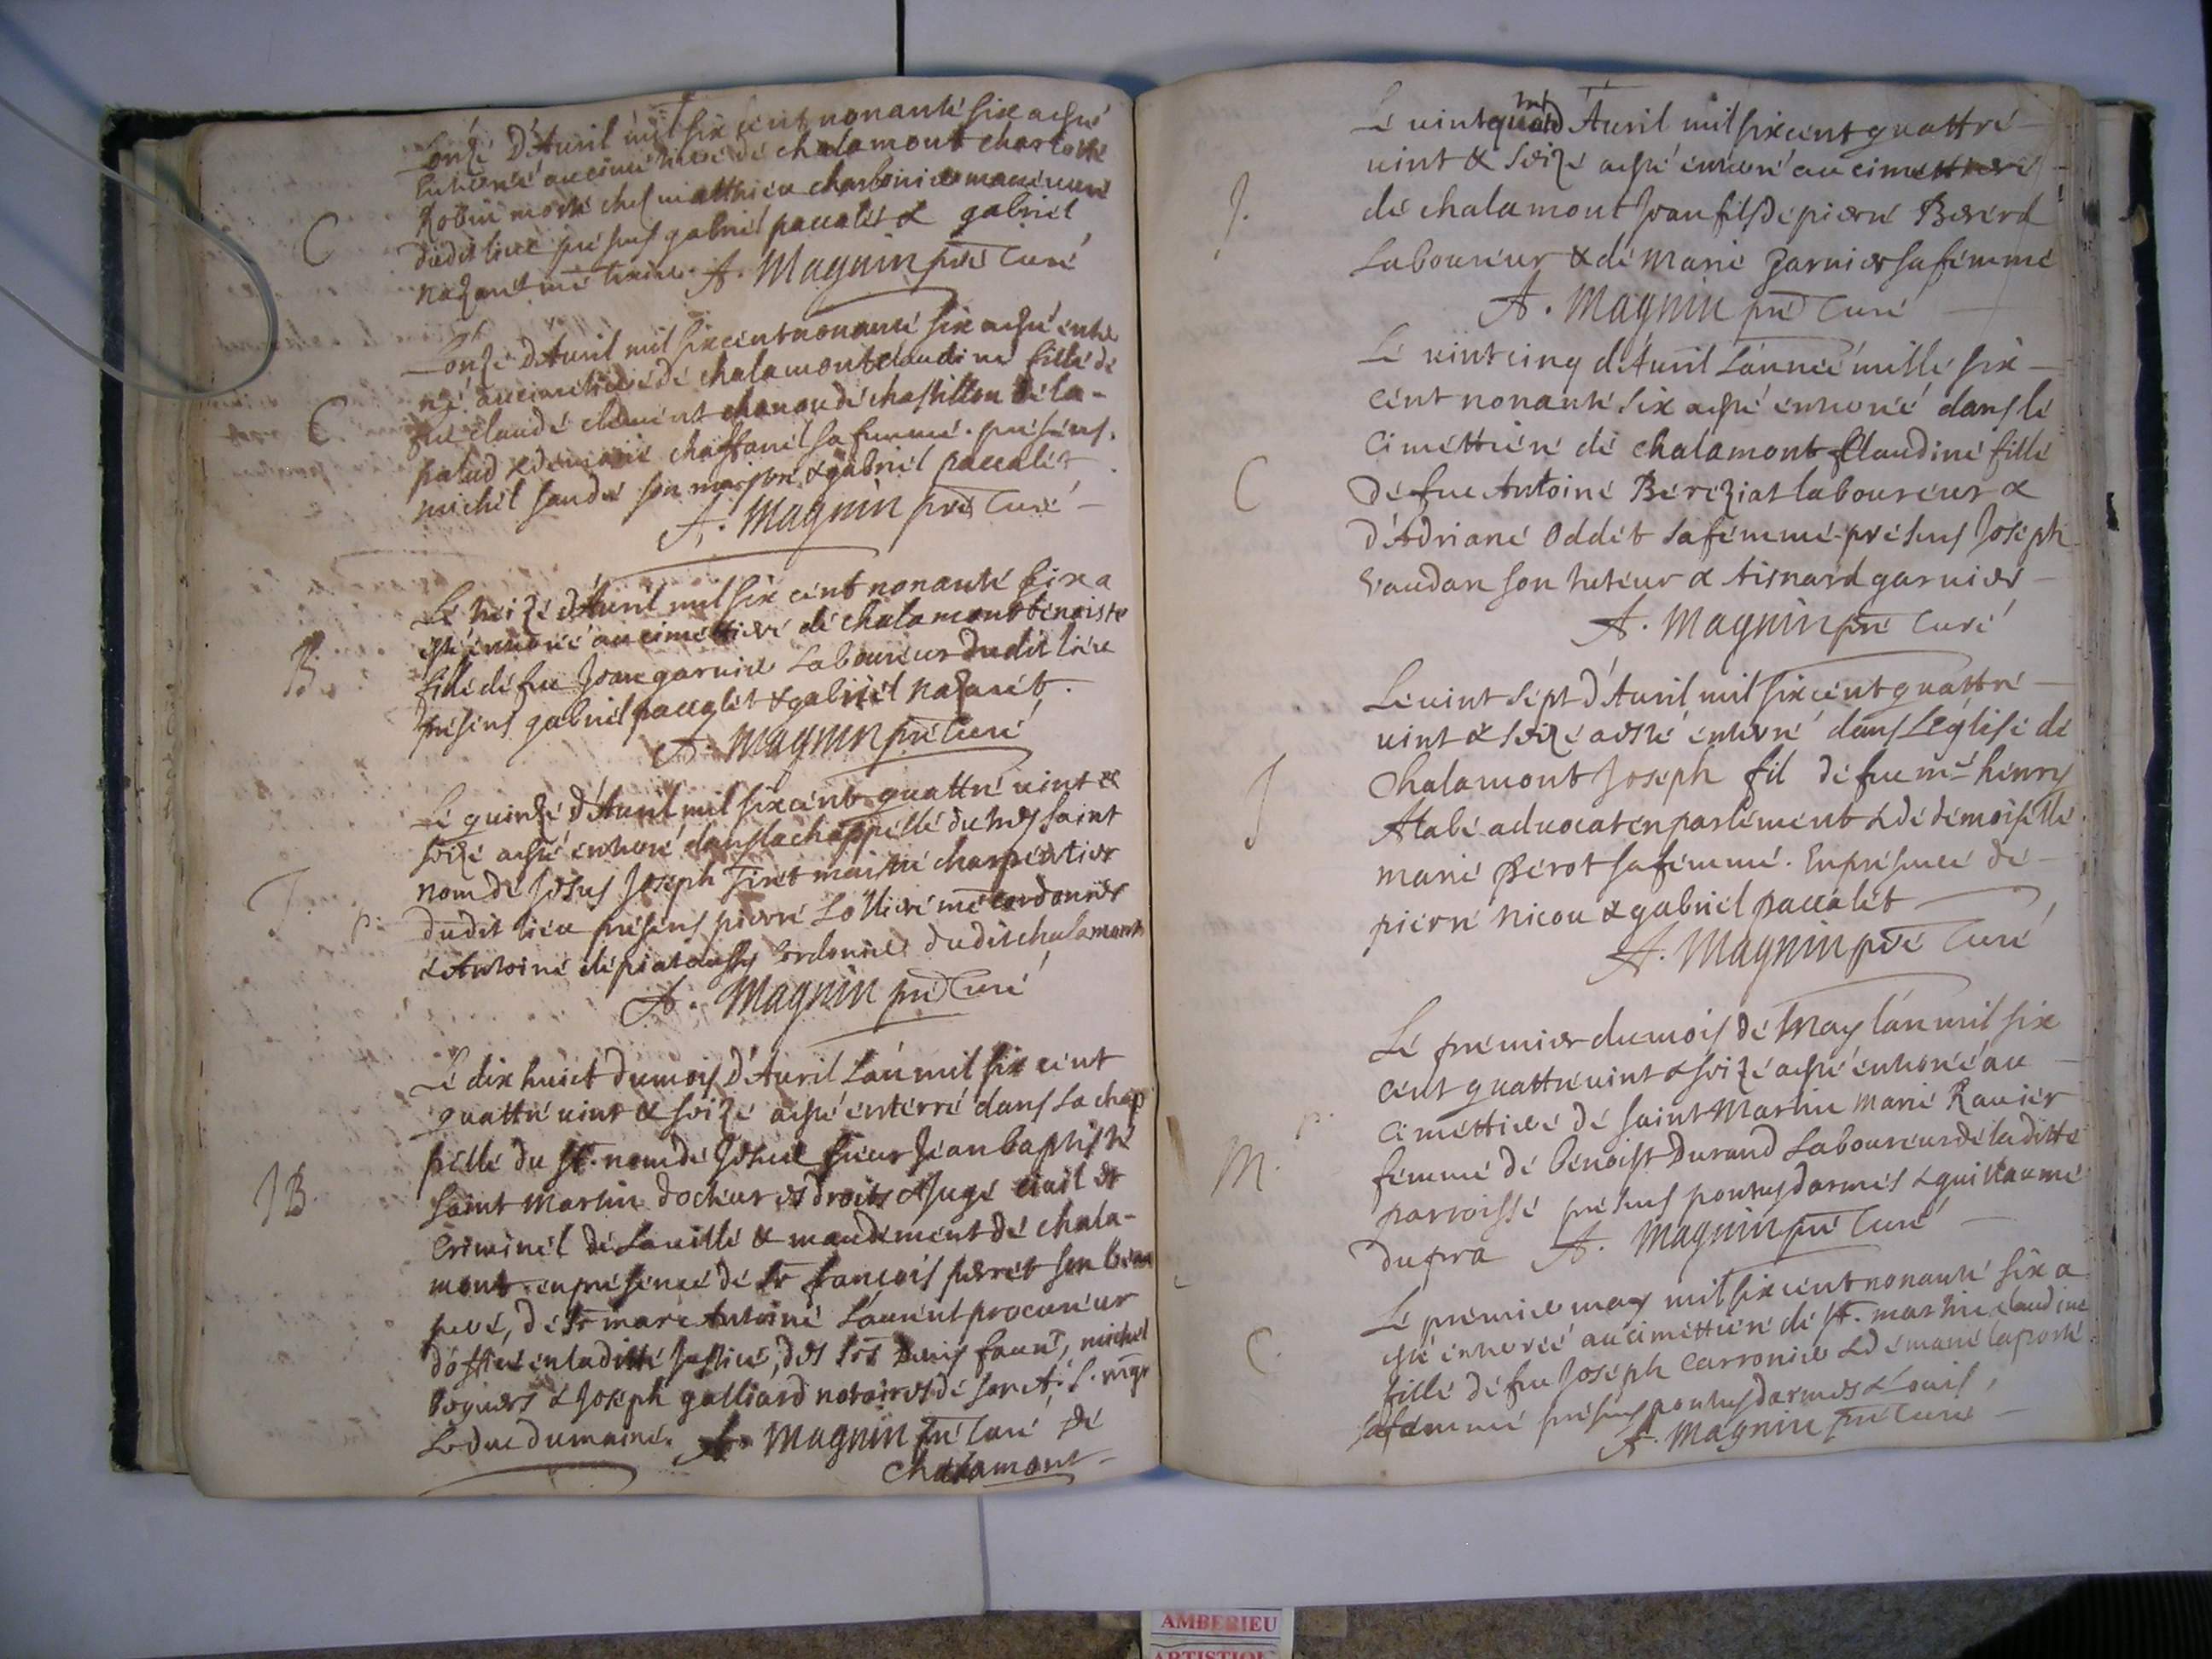 L'onzé D'Auril mil six cent nonanté six a esté
Enterré au cimétiere dé chalamont charlotte
C
Robin morte chez matthieu charbonier
dudit lieu présens gabriel paccalet & gabriel
nazaret A. Magnin pre Curé
L'onzé D'Auril mil six cent nonanté six a esté enter
ré au cimétieré dé chalamont claudiné fillé dé
C
feu claudé clément dé chastillon dé la-
palud & dé marié sa femmé. présens.
michel son & gabriel paccalet
A. Magnin pre Curé
Lé treizé d'Auril mil six cént nonanté six a
esté enterré au cimettieré dé chalamont benoiste
B.
fillé dé feu Jean garnier Laboureur dudit lieu
présens gabriel paccalet & gabriel nazaret.
A. Magnin pre Curé
Lé quinzé d'Auril mil six cént quattré uint &
seizé a esté enterré dans la chappéllé du tres saint
nom dé Jesus Joséph maistré charpentier
J. p.
dudit lieu présens pierré mé cordonnier
& Antoiné aussy Cordonnier dudit chalamont
A. Magnin pre Curé
Lé dix huict du mois D'Auril L'an mil six cént
quattré uint & seizé a esté énterré dans La chap
péllé du st. nom dé Jesus sieur Jean baptisté
JB
saint Martin docteur es droits & Jugé ciuil et
Criminél dé La uillé & mandément dé chala-
mont en présencé dé sr françois perrét son beau
peré, dé sr marc Antoiné Laurént procuréur
d'officé en laditté Justicé, des srs Denis fauré, michel
& Joséph galliard notaires dé son A. S. mgr
Le duc du mainé. A. Magnin pre Curé dé
Chalamont -
Lé uint quatre d'Auril mil six cent quattré -
uint & seizé a esté enterré au cimettieré
J.
dé chalamont Jean fils dé pierré Bererd
Laboureur & dé Marié garnier sa femmé
A. Magnin pre Curé
Lé uint cinq d'Auril L'anneé millé six -
cént nonanté six a esté enterré dans lé
cimettieré dé chalamont Claudiné fillé
C
dé feu Antoiné Béréziat laboureur &
d'Adriané Oddét sa fémmé présens Joséph
Vaudan son tuteur & garnier -
A. Magnin pre Curé
Lé uint sépt d'Auril mil six cent quattré -
uint & seizé a esté enterré dans L'églisé dé
J
Chalamont Joséph fil dé feu mé henry
Alabé aduocat en parlément & dé démoisellé
marié Pérot sa fémmé. En présencé dé -
pierré Nicou & gabriel paccalét
A. Magnin pre Curé
Lé prémier du mois dé May l'an mil six
cént quattré uint & seizé a esté enterré au -
p.
cimettieré dé saint Martin Marié Rauier
M.
fémmé dé bénoist Durand Laboureur dé laditté
parroissé présens pontus darmés & guillaumé
dupra A. Magnin pre Curé -
Lé prémier may mil six cent nonanté six a
esté enterreé au cimettieré dé st. martin claudiné
C.
fillé dé feu Joséph Carronier & dé marié laporté
sa fémmé présens pontus darmes & Louis
A. Magnin pre Curé -
AMBERIEU